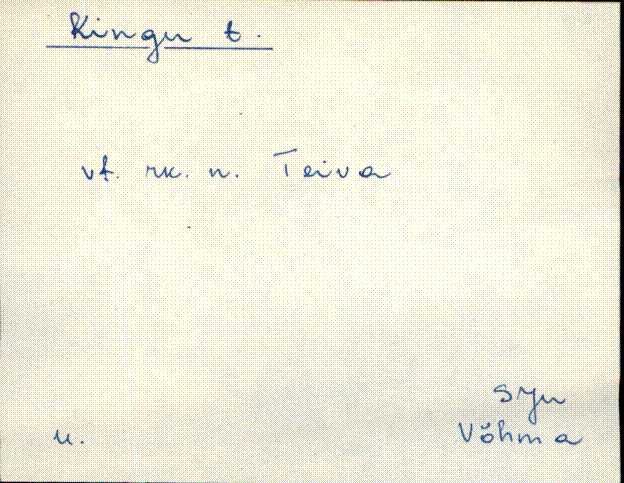 Kingu t.
vt. rk. n. Teiva
SJn
Võhma
u.